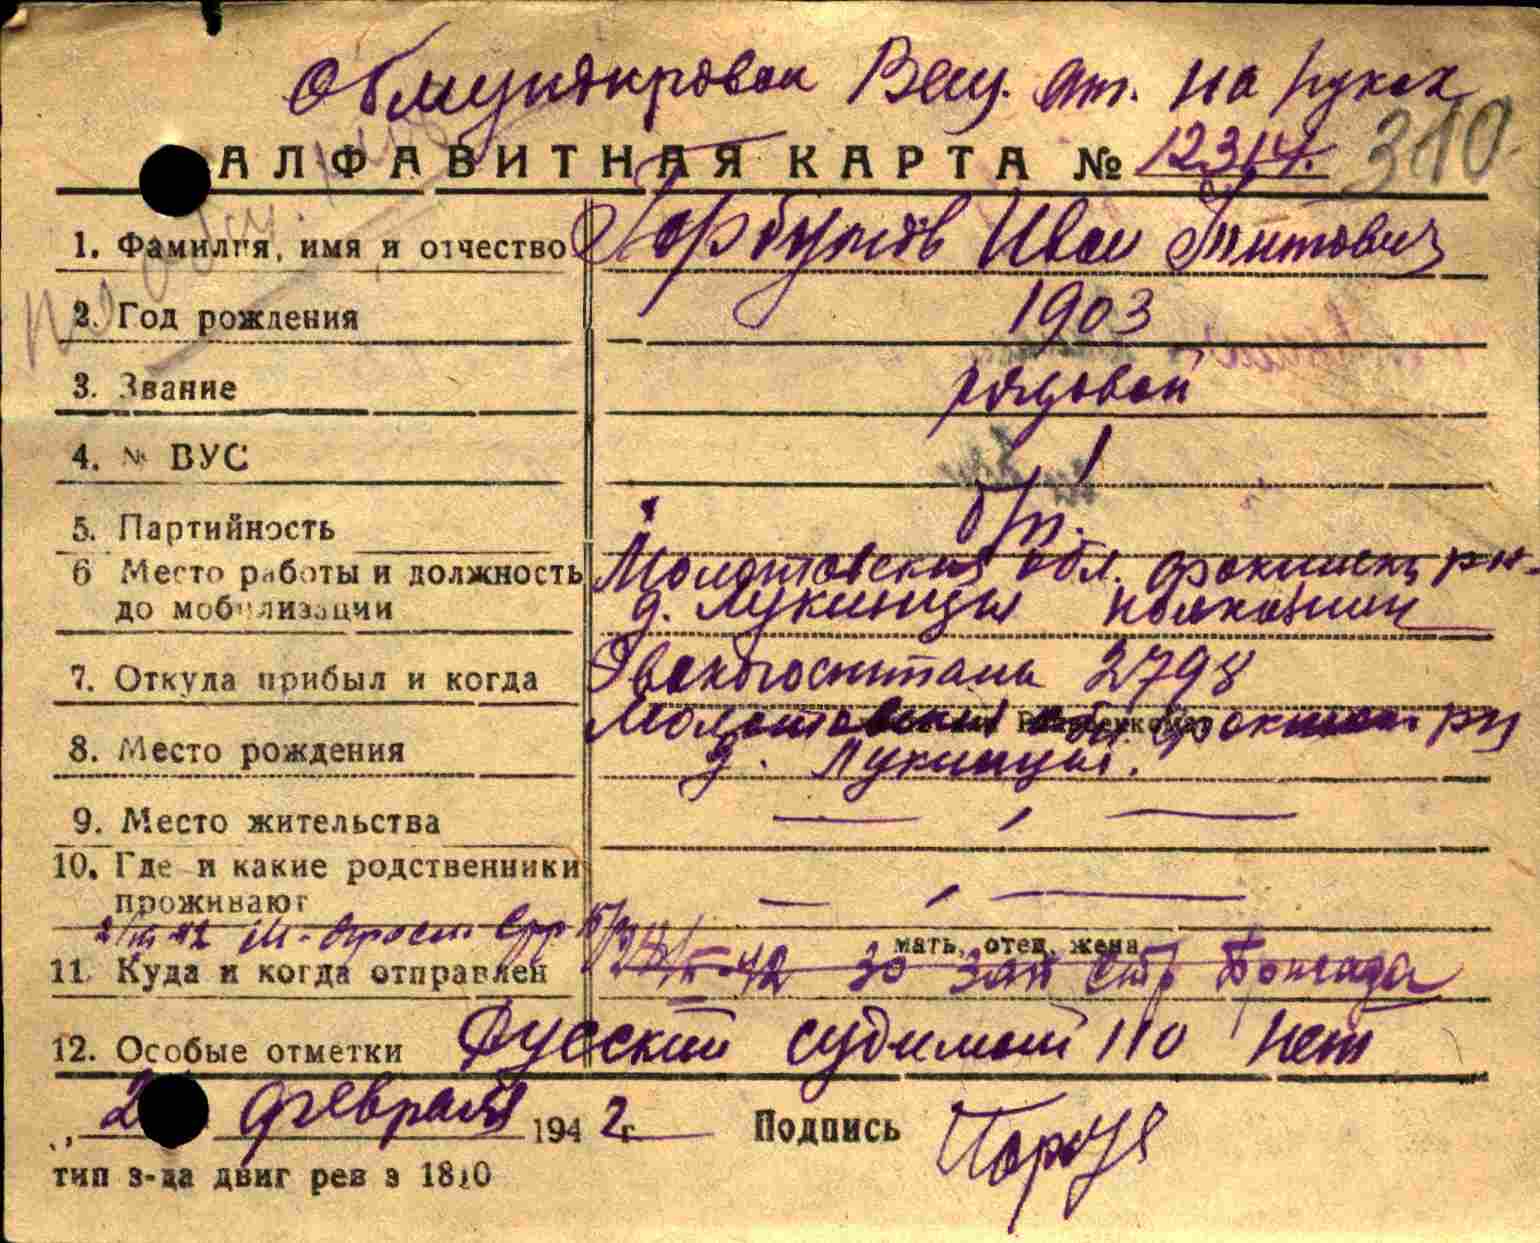 Обмундирован Вещ. ат. на руках
АЛФАВИТНАЯ КАРТА № 12314. 310
1. Фамилия, имя и отчество Горбунов Иван Титович
2. Год рождения 1903
3. Звание рядовой
4. № ВУС
5. Партийность б/п.
6 Место работы и должность Молотовская обл. Фокинск рн-
до мобилизации д. Лукинцы колхозник
7. Откуда прибыл и когда Эвакогоспиталь 2798
8. Место рождения Молотовская обл. Фокинск рн
д. Лукинцы.
9. Место жительства
10. Где и какие родственники
проживают
мать, отец, жена
11. Куда и когда отправлен 30 зап стр бригада
12. Особые отметки Русский судимости нет
2 февраля 1942 г. Подпись
тип з-да двиг рев з 1810